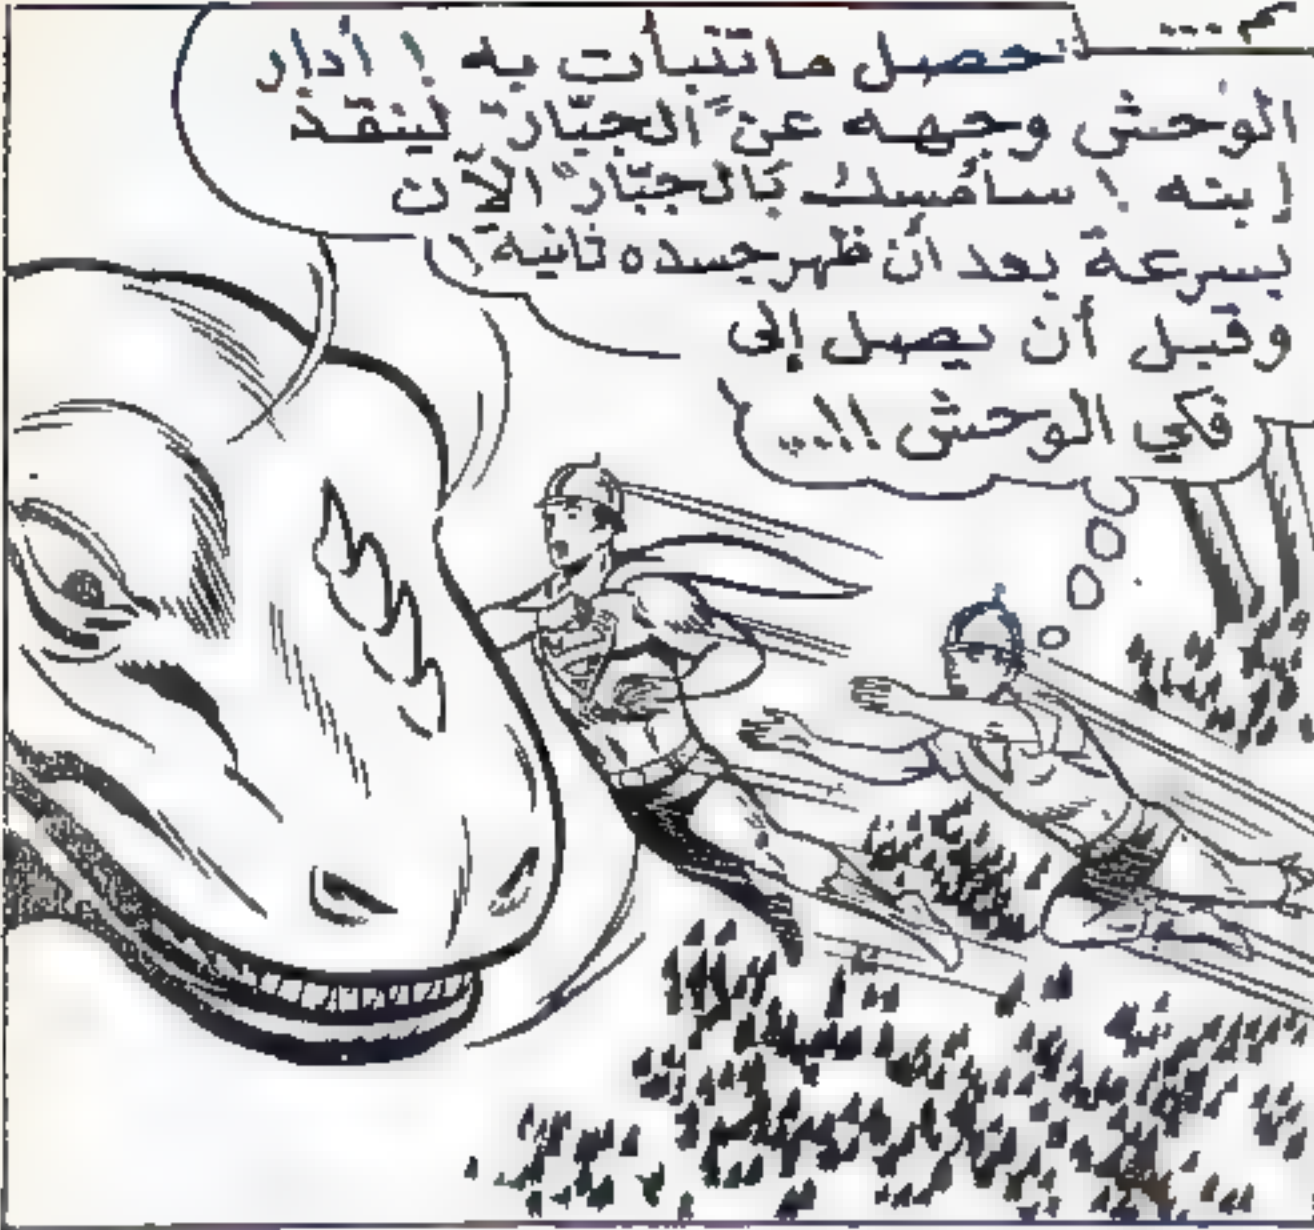 حصل ما تنبأت به ! أدار
الوحش وجهه عن "الجبّار" لينقذ
إبنه ! سأمسك بالجبّار" الآن
بسرعة بعد أن ظهر جسده ثانية !
وقبل أن يصل إلى
فكي الوحش !!...